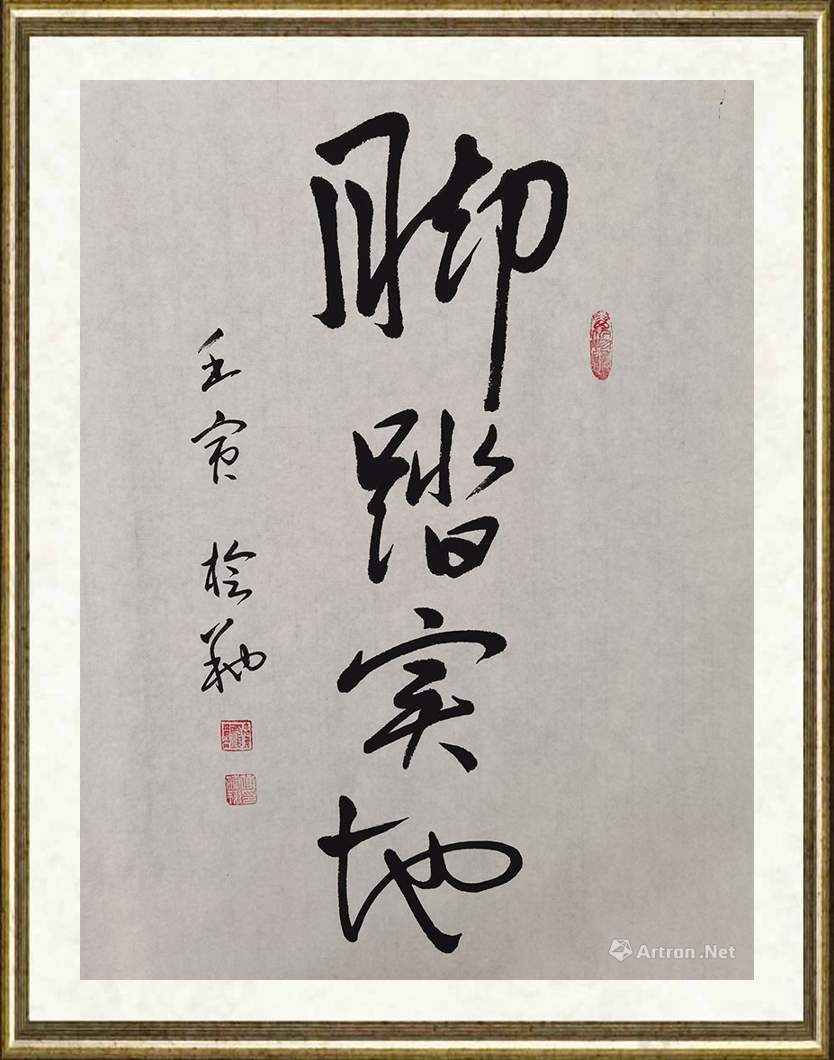 脚踏实地
壬寅
Artron.Net